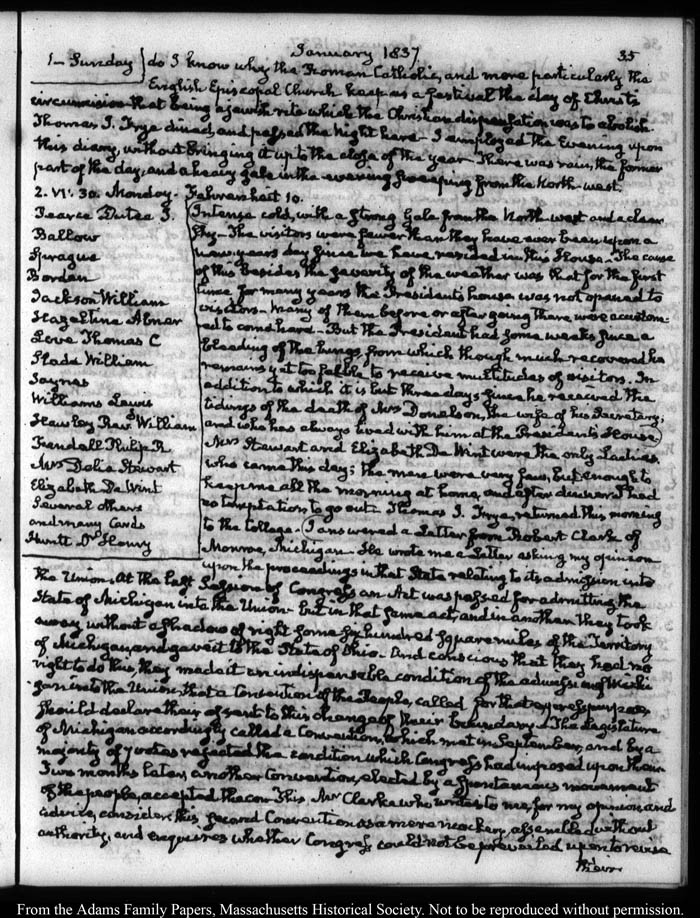 January 1837.
35
1 - Sunday } do I know why the Roman Catholic, and more particularly the
English Episcopal Church keep as a festival the day of Christs
circumcision that being a jewish rite which the Christian dispensation was to abolish.
Thomas J. Frye dined, and passed the Night here - I employed the Evening upon
this diary, without bringing it up to the close of the year - There was rain, the former
part of the day, and a heavy gale in the evening sweeping from the North-west.
2. VI:30. Monday - Fahrenheit 10.
Pearce Dutee J.
Ballow
Sprague
Borden
Jackson William
Hazeltine Abner
Love Thomas C
Slade William
Haynes
Williams Lewis
Hawley Revd. William
Fendall Philip R
Mrs Delia Stewart
Elizabeth De Wint
Several others
and many Cards
Huntt Dr. Henry
Intense cold, with a strong Gale from the North-west and a clear
Sky - The visitors were fewer than they have ever been upon a
new years day since we have resided in this House. The cause
of this besides the severity of the weather was that for the first
time for many years the President's house was not opened to
visitors - Many of them before or after going there were accustom-
ed to come here - But the President had some weeks since a
bleeding of the lungs, from which though much recovered he
remains yet too feeble to receive multitudes of visitors. In
addition to which it is but three days since he received the
tidings of the death of Mrs Donelson, the wife of his Secretary,
and who has always lived with him at the President's House
Mrs Stewart and Elizabeth De Wint were the only Ladies
who came this day; the men were very few, but enough to
keep me all the morning at home, and after dinner I had
no temptation to go out - Thomas J. Frye, returned this morning
to the College. I answered a Letter from Robert Clark of
Monroe, Michigan - He wrote me a Letter asking my opinion
upon the proceedings in that State relating to its admission into
the Union - At the last Session of Congress an Act was passed for admitting the
State of Michigan into the Union - but in that same act, and in another they took
away without a shadow of right some six hundred square miles of the Territory
of Michigan, and gave it to the State of Ohio - And conscious that they had not
right to do this, they made it an indispensable condition of the admission of Michi-
gan into the Union, that a Convention of the People, called for that express purpose,
should declare their assent to this change of their boundary - The Legislature
of Michigan accordingly called a Convention, which met in September, and by a
majority of votes rejected the condition which Congress had imposed upon them
Two months later, another Convention, elected by a spontaneous movement
of the people, accepted the con- This Mr Clarke who writes to me, for my opinion and
advice, considers this second Convention as a mere mockery, assembled without
authority, and enquires whether Congress could not be prevailed upon to revise
their
From the Adams Family Papers, Massachusetts Historical Society. Not to be reproduced without permission.